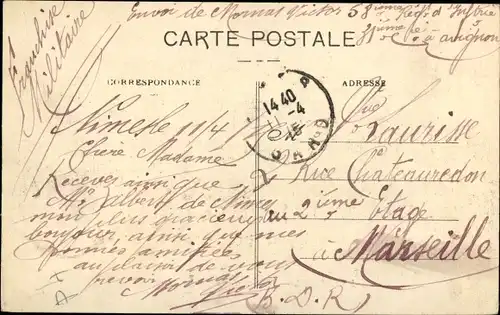 Franchise
Militaire
Envoi de Mornas Victor 58ième Rég. d'Inftrie
31ième Cie à Avignon
CARTE POSTALE
CORRESPONDANCE
ADRESSE
14 40
11-4
Nimes le 11/4
Chère Madame
Recevez ainsi que
Mr Albert de Nimes
mon plus gracieux
bonjour, ainsi que mes
bonnes amitiées
au plaisir de vous
revoir Mornas
Victor
Vve Laurisse
2 Rue Châteauredon
au 2ième Etage
à Marseille
B.D.R